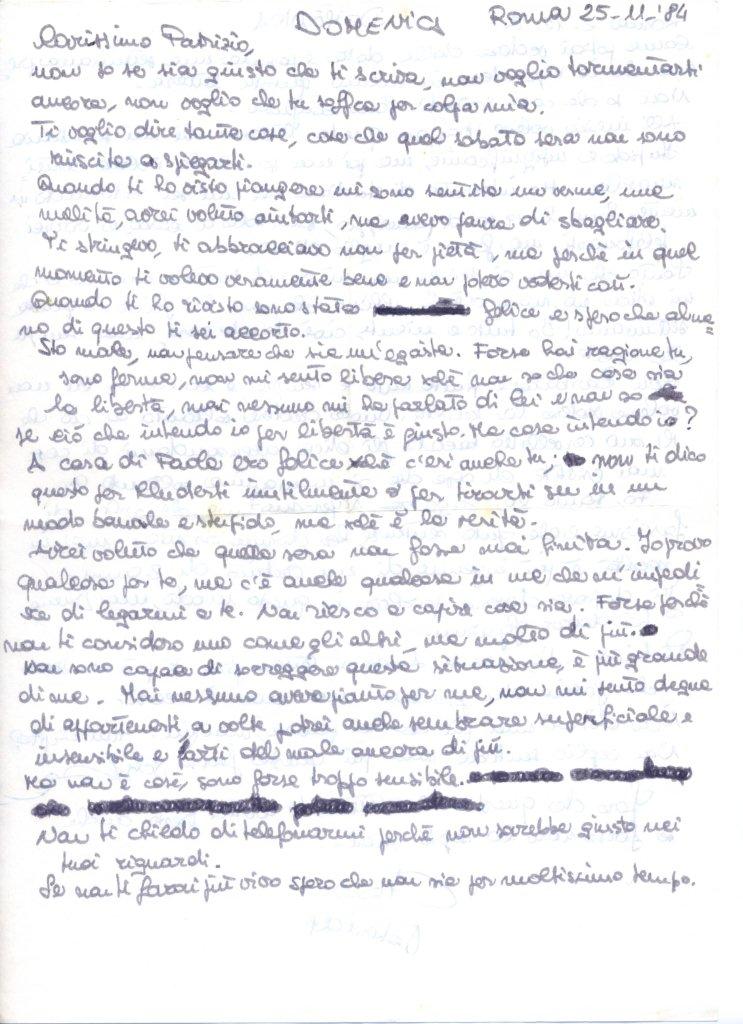 DOMENICA Roma 25-11-'84
Carissimo Patrizio,
non so se sia giusto che ti scriva, non voglio tormentarti
ancora, non voglio che tu soffra per colpa mia.
Ti voglio dire tante cose, cose che quel sabato sera non sono
riuscita a spiegarti.
Quando ti ho visto piangere mi sono sentita un verme, una
nullità, avrei voluto aiutarti, ma avevo paura di sbagliare.
Ti stringevo, ti abbracciavo non per pietà, ma perchè in quel
momento ti volevo veramente bene e non potevo vederti così.
Quando ti ho rivisto sono stata felice e spero che alme
no di questo ti sei accorto.
Sto male, non pensare che sia un'egoista. Forse hai ragione tu,
sono ferma, non mi sento libera xchè non so che cosa sia
la libertà, mai nessuno mi ha parlato di lei e non so
se ciò che intendo io per libertà è giusto. Ma cosa intendo io?
A casa di Paola ero felice xchè c'eri anche tu, non ti dico
questo per illuderti inutilmente o per tirarti su in un
modo banale e stupido, ma xchè è la verità.
Avrei voluto che quella sera non fosse mai finita. Io provo
qualcosa per te, ma c'è anche qualcosa in me che mi impedi
sce di legarmi a te. Non riesco a capire cosa sia. Forse perchè
non ti considero uno come gli altri, ma molto di più.
Non sono capace di sorreggere questa situazione, è più grande
di me. Mai nessuno aveva pianto per me, non mi sento degna
di appartenerti, a volte potrei anche sembrare superficiale e
insensibile e farti del male ancora di più.
Ma non è così, sono forse troppo sensibile.
Non ti chiedo di telefonarmi perchè non sarebbe giusto nei
tuoi riguardi.
Se non ti farai più vivo spero che non sia per moltissimo tempo.